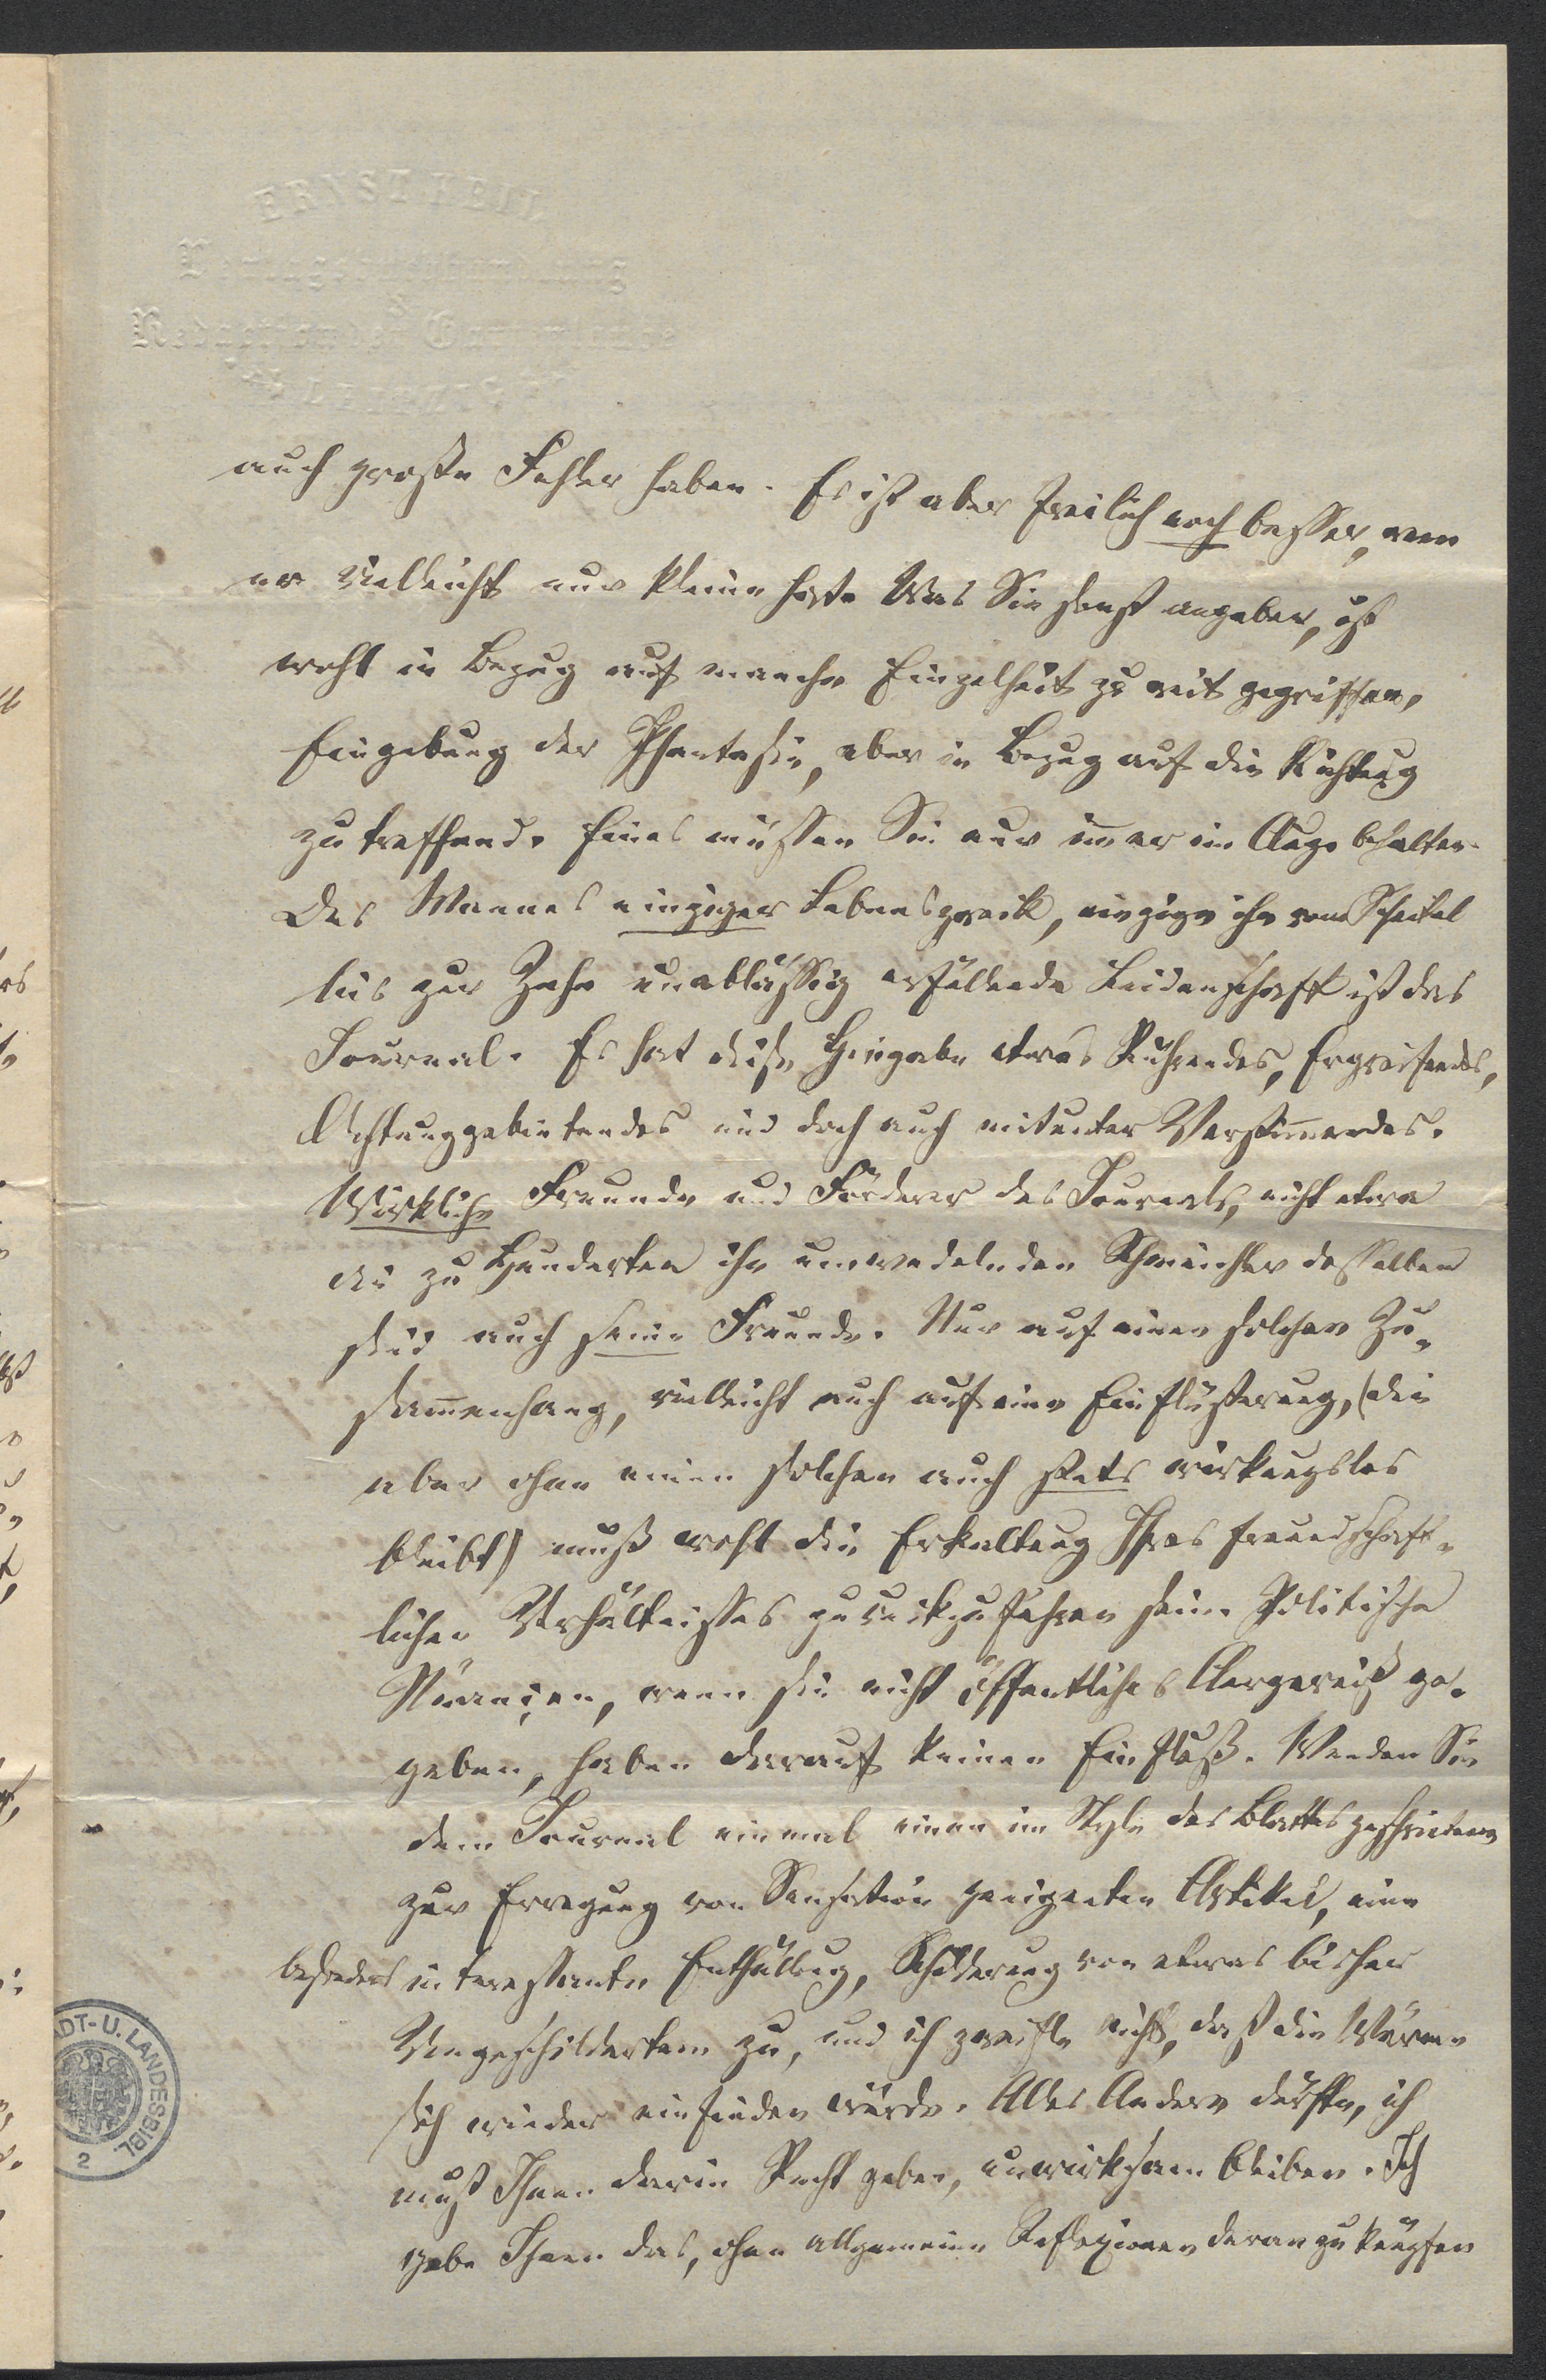 ERNST KEIL
Verlagsbuchhandlung
&
Redaction der Gartenlaube
LEIPZIG
auch große Fehler haben. Es ist aber freilich noch besser, wen
er vielleicht nur kleine hat. Was Sie sonst angeben, ist
wohl in Bezug auf manche Einzelheit zu weit gegriffen,
Eingebung der Phantasie, aber in Bezug auf die Richtung
zutreffend. Eines müssen Sie nur im̄er im Auge behalten.
Des Mannes einziger Lebenszweck, einzige ihn vom Scheitel
bis zur Zehe unablässig erfüllende Leidenschaft ist das
Journal. Es hat diese Hingabe etwas Rührendes, Ergreifendes,
Achtunggebietendes und doch auch mitunter Verstim̄endes.
Wirkliche Freunde und Förderer des Journals, nicht etwa
die zu Hunderten ihn umwedelnden Schmeichler desselben
sind auch seine Freunde. Nur auf einen solchen Zu-
sam̄enhang, vielleicht auch auf eine Einflüsterung, (die
aber ohne einen solchen auch stets wirkungslos
bleibt) muß wohl die Erkaltung Ihres freundschaft-
lichen Verhältnisses zurückzuführen sein. Politische
Nüançen, wenn sie nicht öffentliches Aergerniß ge-
geben, haben darauf keinen Einfluß. Wenden Sie
dem Journal einmal einen im Style des Blattes geschriebenen
zur Erregung von Sensation geeigneten Artikel, eine
besonders interessante Enthüllung, Schilderung von etwas bisher
Ungeschildertem zu, und ich zweifle nicht, daß die Wärme
sich wieder einfinden würde. Alles Andere dürfte, ich
muß Ihnen darin Recht geben, unwirksam bleiben. Ich
gebe Ihnen das, ohne allgemeine Reflexionen daran zu knüpfen
ADT- U. LANDESBIBL.
2